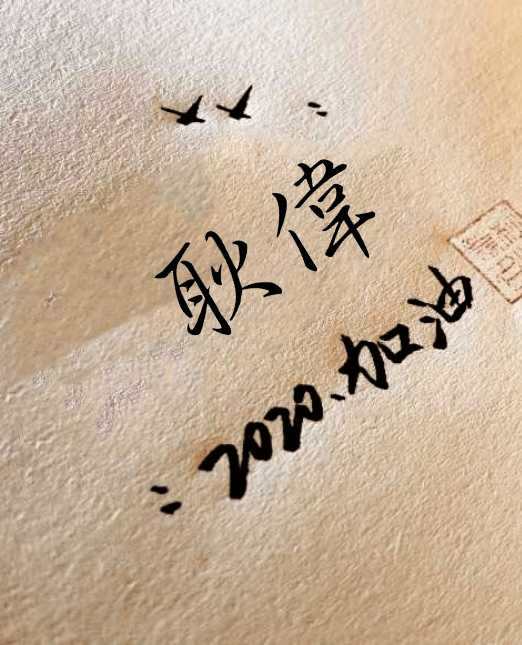 耿偉
2020、加油